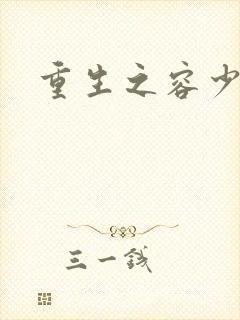 重生之容少
三一钱